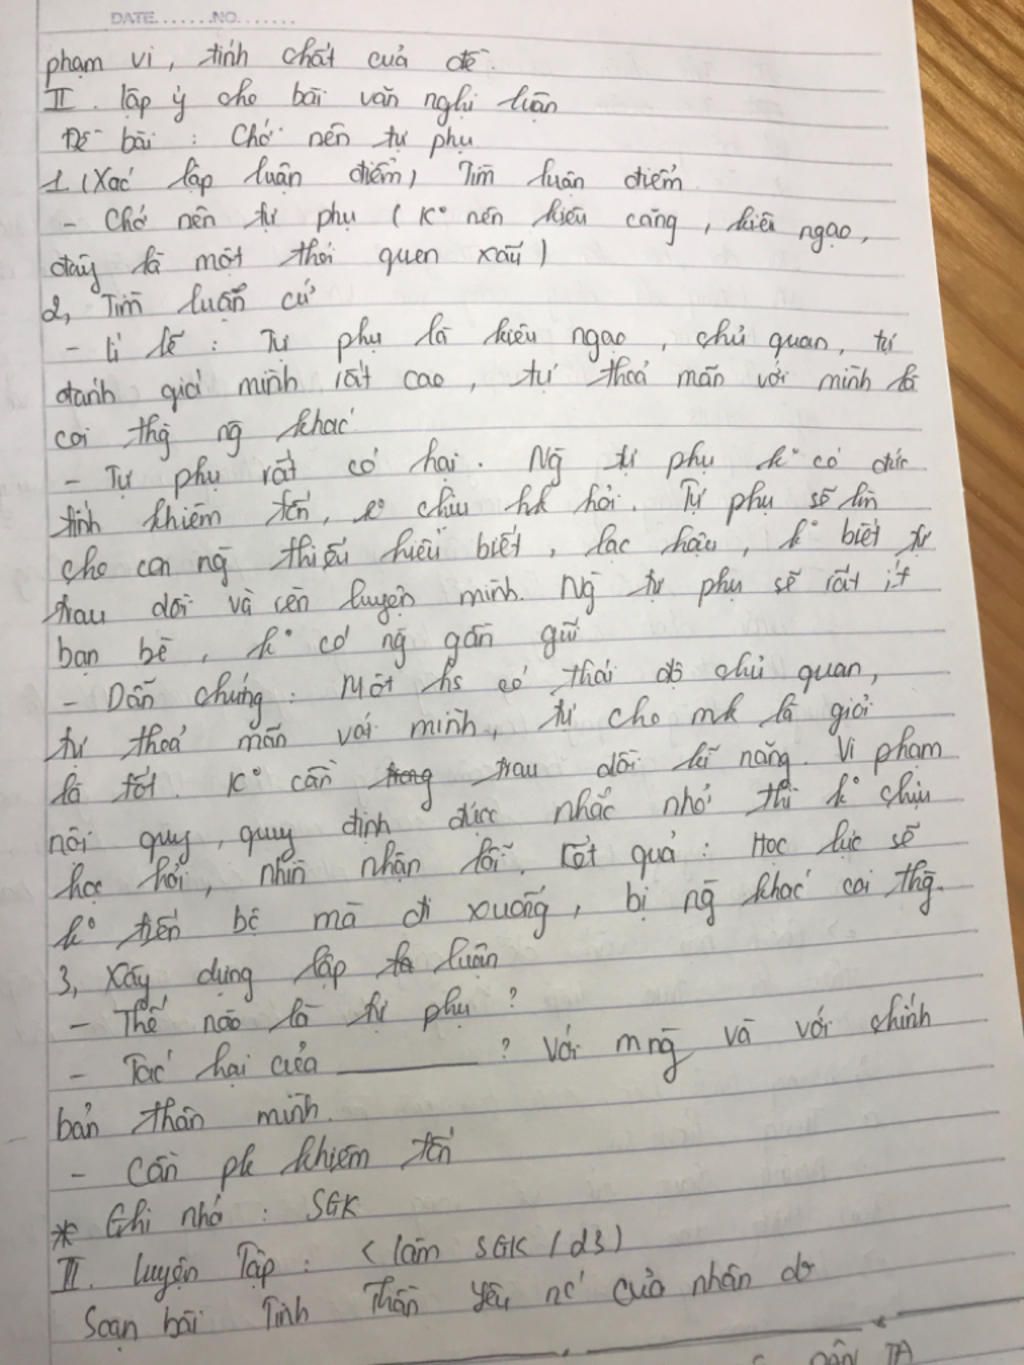 DATE.......NO.......
phạm vi, tính chất của đề.
II. lập ý cho bài văn nghị luận
Đề bài : Chớ nên tự phụ
1. (Xác lập luận điểm) Tìm luận điểm
- Chớ nên tự phụ ( K° nên kiêu căng, kiêu ngạo,
đây là một thói quen xấu)
2, Tìm luận cứ
- Lí lẽ : Tự phụ là kiêu ngạo, chủ quan, tự
đánh giá mình rất cao, tự thoả mãn với mình là
coi thg ng khác
- Tự phụ rất có hại. Ng tự phụ k° có đức
tính khiêm tốn, k° chịu hk hỏi. Tự phụ sẽ
cho con ng thiếu hiểu biết, lạc hậu, k° biết tự
trau dồi và rèn luyện mình. Ng tự phụ sẽ rất ít
bạn bè, k° có ng gần gũi
- Dẫn chứng : Một hs có thái độ chủ quan,
tự thoả mãn với mình, tự cho mk là giỏi
là tốt. K° cần trau dồi kĩ năng. Vi phạm
nội quy, quy định được nhắc nhở thì k° chịu
học hỏi, nhìn nhận lỗi. Kết quả : Học lực sẽ
k° tiến bộ mà đi xuống, bị ng khác coi thg.
3, Xây dựng lập luận
- Thế nào là tự phụ ?
- Tác hại của ________ ? Với mng và với chính
bản thân mình.
- Cần pk khiêm tốn
* Ghi nhớ : SGK
III. luyện Tập : (làm SGK / 23)
Soạn bài Tinh Thần yêu nc' của nhân
DÂN TA